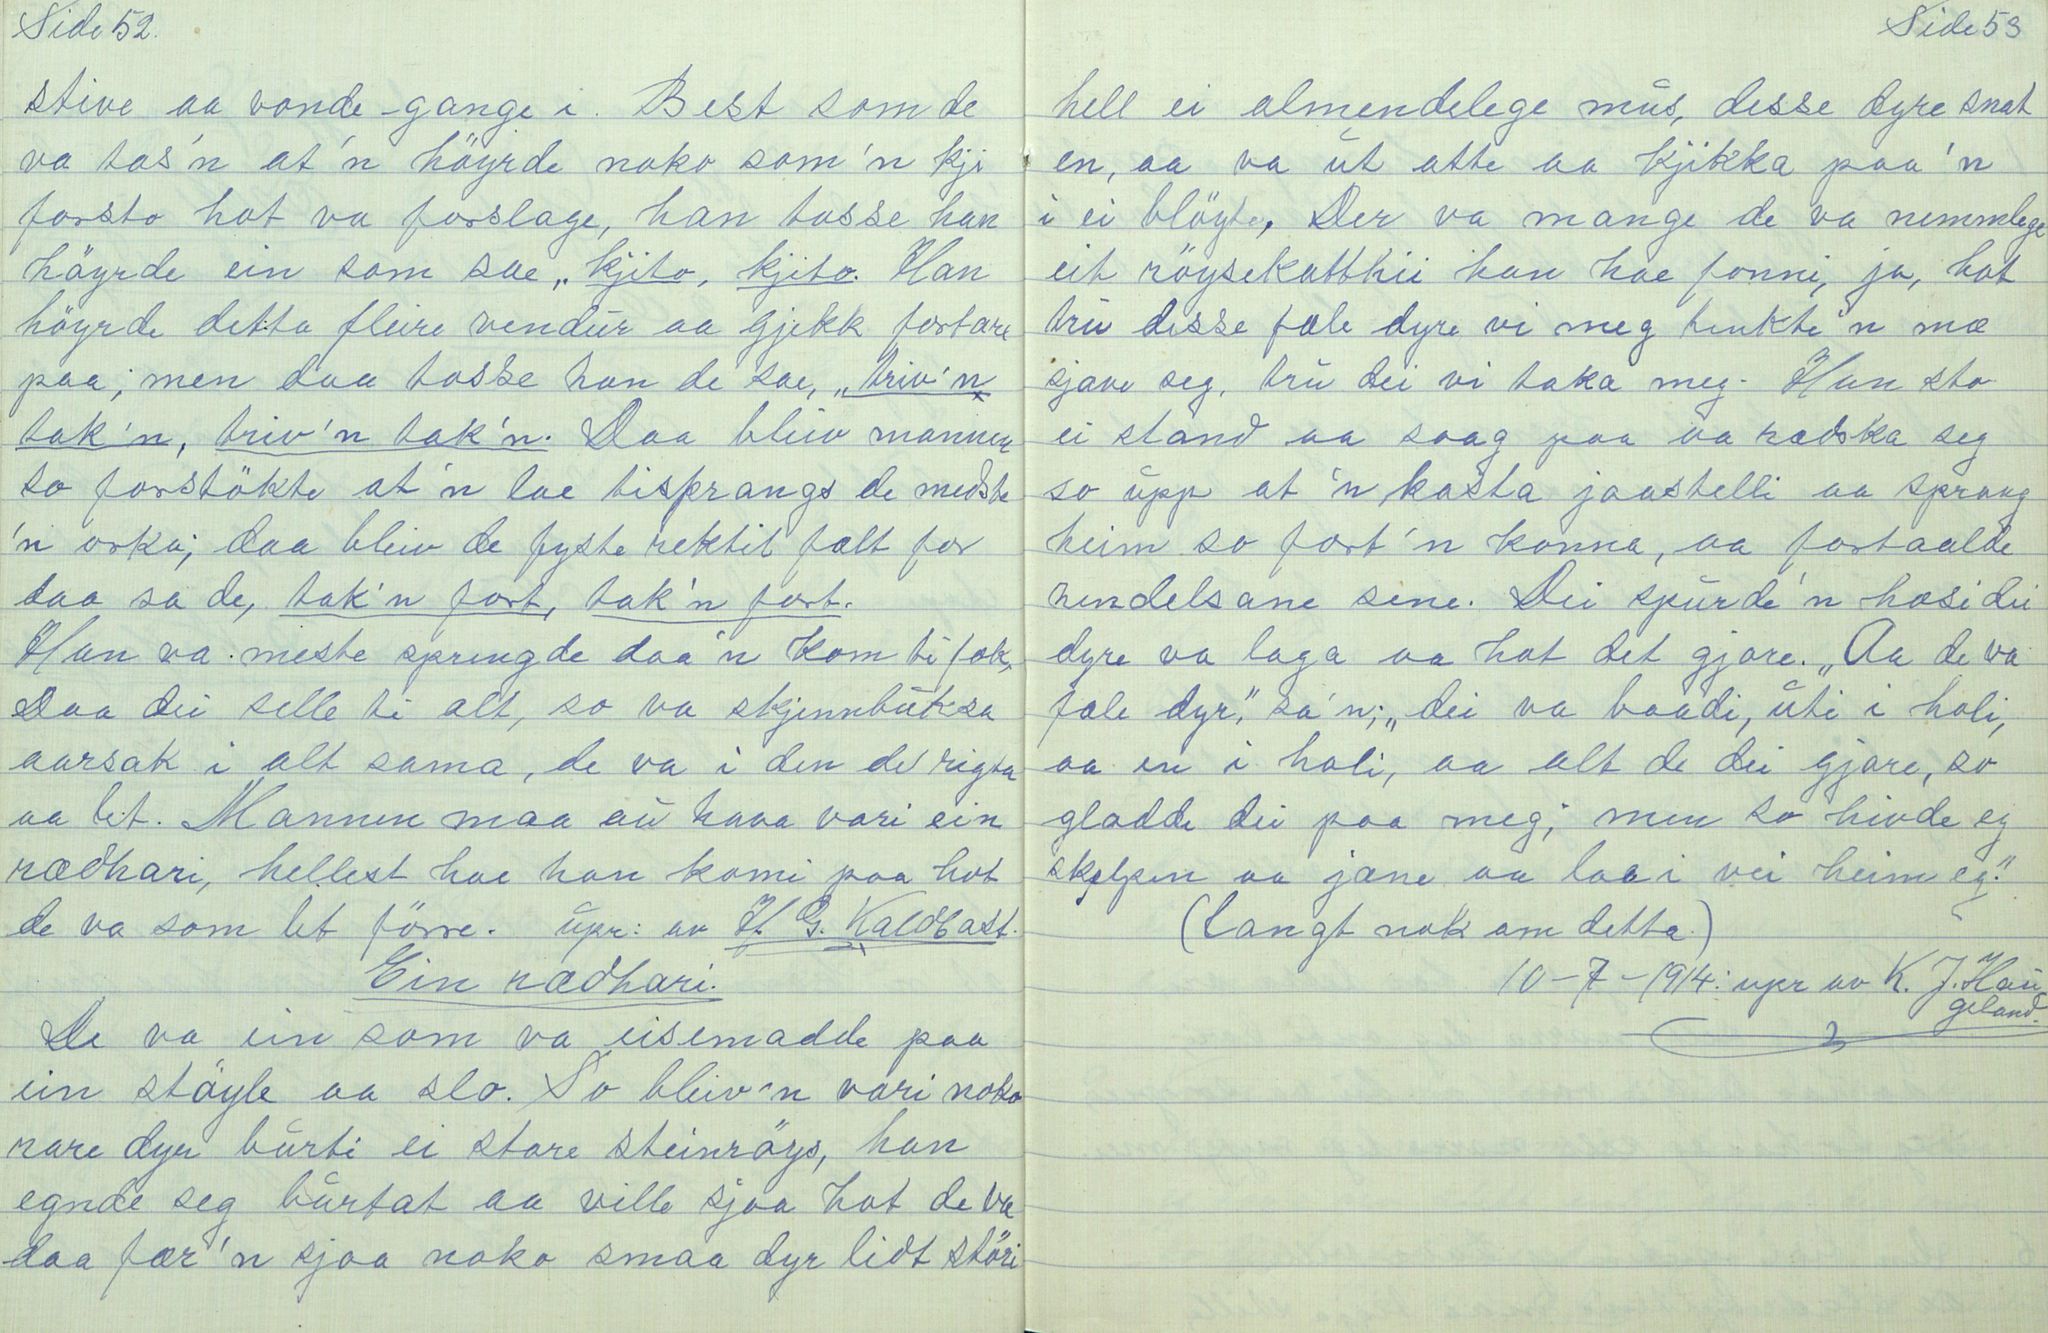 Side 52.
stive aa vonde gange i. Best som de
va tos'n at'n höyrde noko som'n kji
forsto hot va forslage, han tosse han
höyrde ein som sae „kjito, kjito. Han
höyrde detta fleire vendŭr aa gjekk fortare
paa; men daa tosse han de sae, „triv'n
tak'n, triv'n tak'n. Daa bleiv mannen
so forstökte at'n lae tisprangs de medste
'n orka; daa bleiv de fyste rektit fælt for
daa sa de, tak'n fort, tak'n fort.
Han va meste sprengde daa'n kom ti fok,
Daa dei selle ti alt, so va skjennbŭksa
aarsak i alt sama, de va i den de rigta
aa let. Mannen maa aŭ hava vari ein
rædhari, hellest hae han komi paa hot
de va som let förre. ŭpr: av H. G. Kaldbast.
Ein rædhari.
De va ein som va eisemadde paa
ein stöyle aa slo. So bleiv'n vari noko
rare dyr bŭrti ei store steinröys, han
egnde seg bŭrtat aa ville sjaa hot de va
daa fær'n sjaa noko smaa dyr lidt störi
Side 53
hell ei almendelege mŭs, desse dyre snat
en, aa va ŭt atte aa kjikka paa'n
i ei blöyte, Der va mange de va nemmlege
eit röysekatthii han hae fonni, ja, hot
trŭ desse fæle dyre vi meg tenkte'n mæ
sjave seg, trŭ dei vi taka meg. Han sto
ei stand aa saag paa aa rædska seg
so ŭpp at'n kasta jaastelli aa sprang
heim so fort'n konna, aa fortaalde
hendelsane sine. Dei spŭrde'n hosi dei
dyre va laga aa hot det gjore. „Aa de va
fæle dyr," sa'n; „dei va baadi, ŭti i holi,
aa en i holi, aa alt de dei gjore, so
gladde dei paa meg; men so hivde eg
skjelpen aa jæne aa laa i vei heim eg."
(Langt nok om detta.)
10-7-1914: upr av K. J. Haŭ
geland.